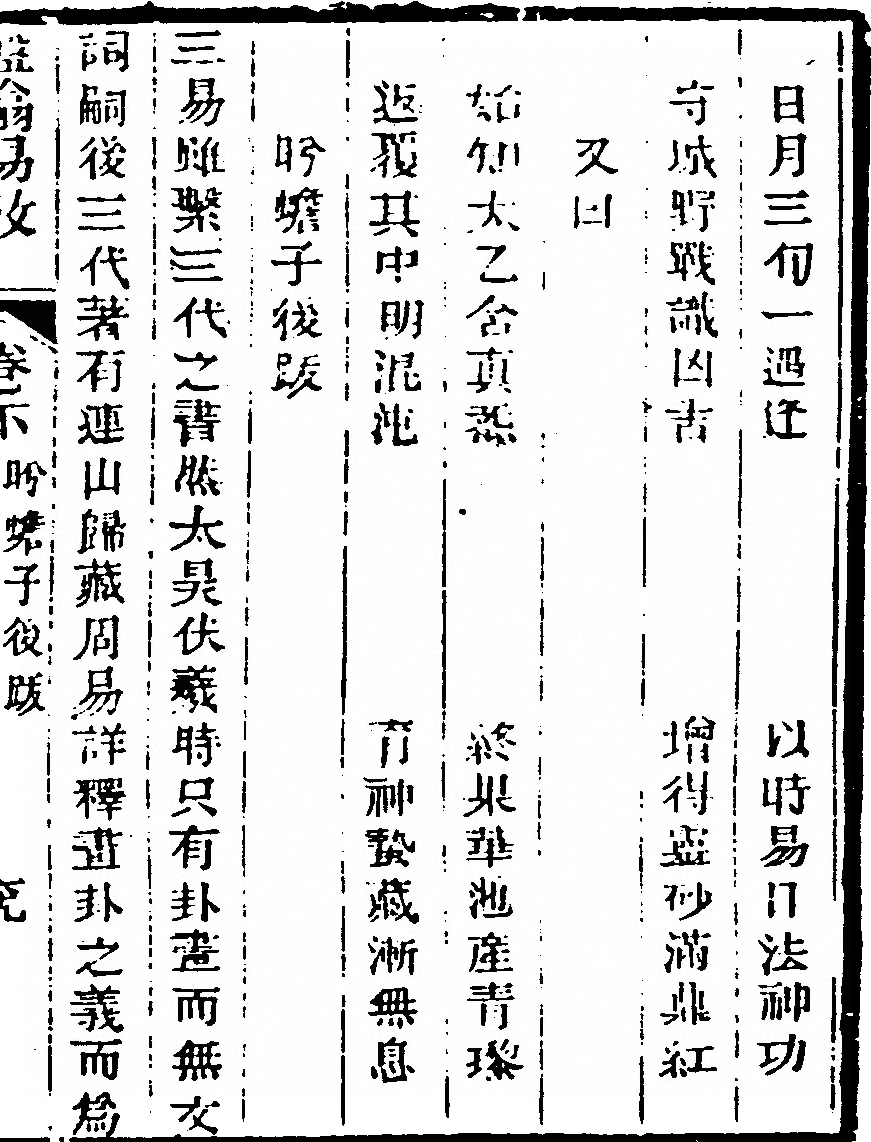 日月三旬一遇逢 以時易日法神功
守城野戰識凶吉 增得靈砂滿鼎紅
又曰
始知太乙含真炁 終果華池產青璨
返覆其中明混沌 育神蟄藏漸無息
昤蟾子後跋
三易雖繫三代之書然太昊伏羲時只有卦畫而無文
詞嗣後三代著有連山歸藏周易詳釋畫卦之義而為
翁易攷 卷下 昤蟾子後跋